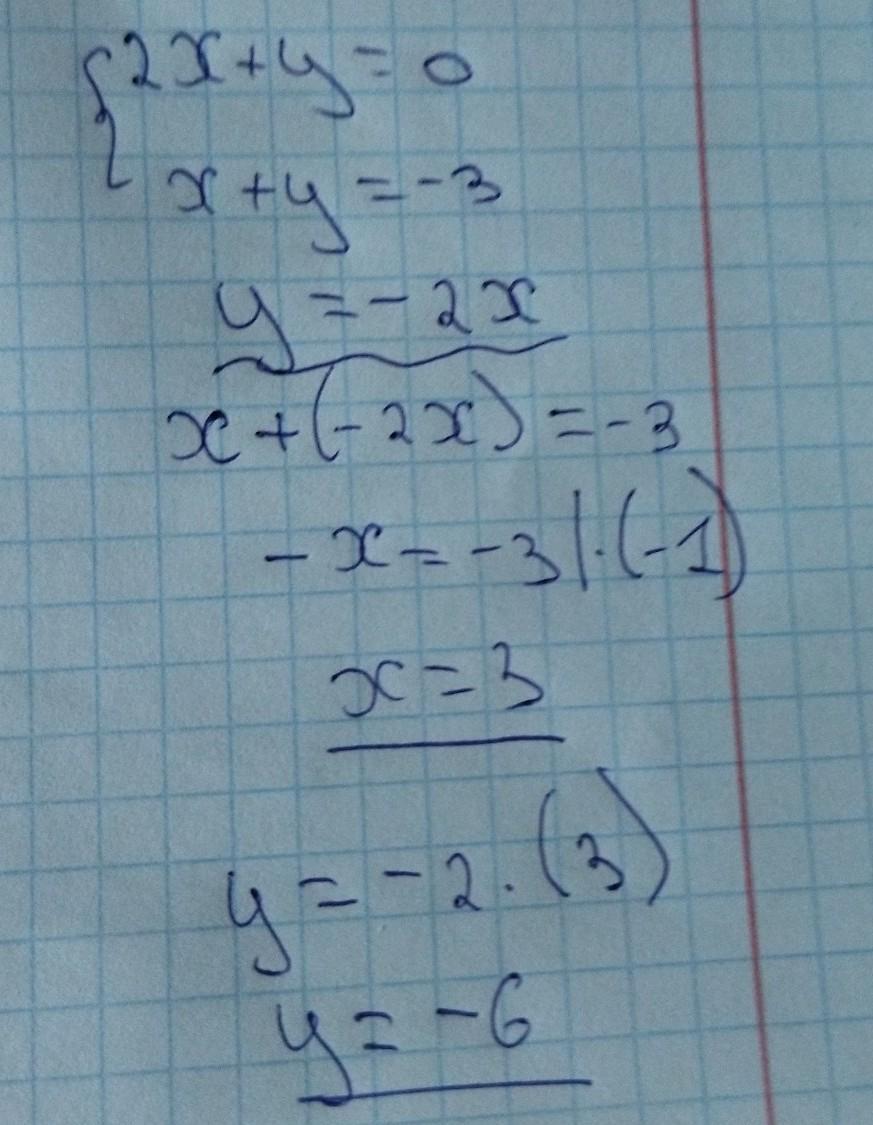 {2x+y=0
x+y=-3
y=-2x
x+(-2x)=-3
-x=-3|·(-1)
x=3
y=-2·(3)
y=-6